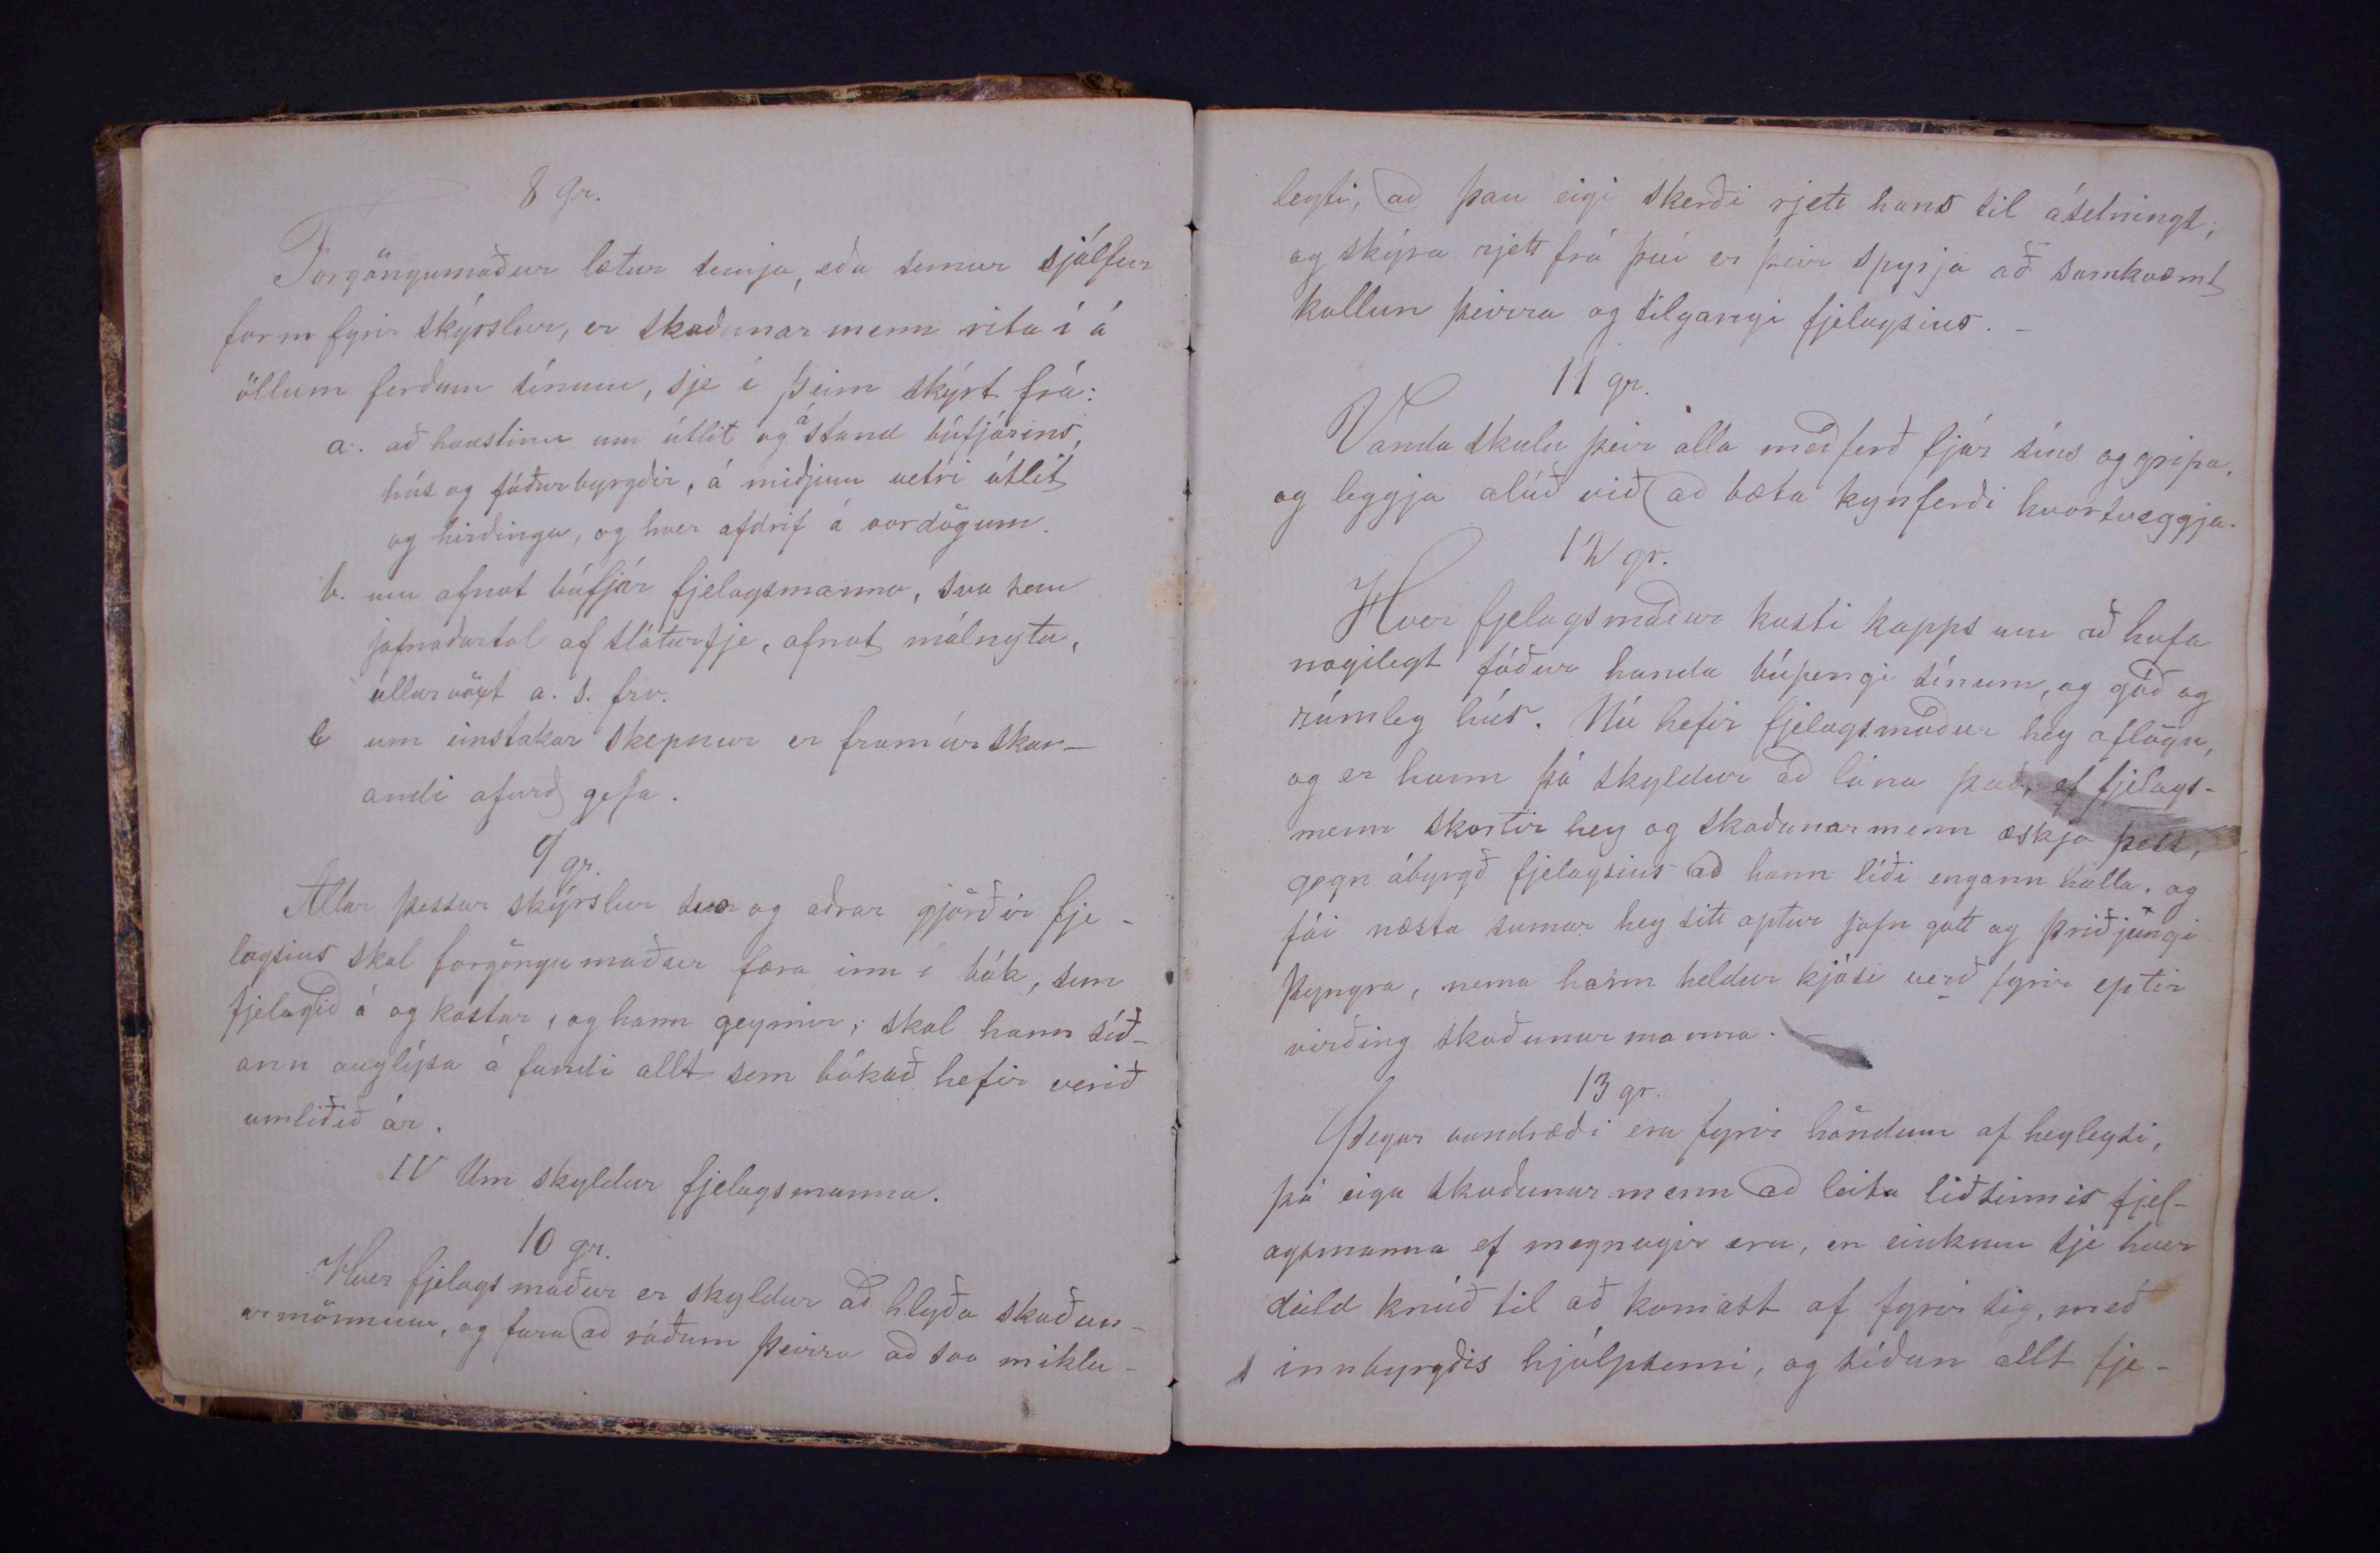 8 gr.
Forgöngumaður lætur semja, eða semur sjálfur
form fyrir skýrslur, er skoðunarmenn rita í á
öllum ferðum sínum, sje í þeim skýrt frá:
a. að haustinu um útlit og ástand búfjárins,
hús og fóðurbyrgðir, á miðjum vetri útlit
og hirðingu, og hver afdrif á vordögum.
b. um afnot búfjár fjelagsmanna, svo sem
jafnaðartal af sláturfje, afnot málnytu,
ullarvöxt a. s. frv.
c um einstakar skepnur er framúrskar-
andi afurð gefa.
9 gr.
Allar þessar skýrslur og aðrar gjörðir fje-
lagsins skal forgöngumaður færa inn í bók, sem
fjelagið á og kostar, og hann geymir; skal hann síð-
ann auglýsa á fundi allt sem bókað hefir verið
umliðið ár.
IV Um skyldur fjelagsmanna.
10 gr.
Hver fjelagsmaður er skyldur að hlyða skoðun-
armönnum, og fara að ráðum þeirra að svo miklu-
leyti, að þau eigi skerði rjett hans til ásetnings;
og skýra rjett frá því er þeir spyrja að samkvæmt
köllun þeirra og tilgangi fjelagsins. -
11 gr.
Vanda skulu þeir alla meðferð fjár síns og gripa,
og leggja alúð við að bæta kynferði hvortveggja.
12 gr.
Hver fjelagsmaður kosti kapps um að hafa
nægilegt fóður handa búpengi sínum, og góð og
rúmleg hús. Nú hefir fjelagsmaður hey aflögu,
og er hann þá skyldur að lána það, ef fjelags-
menn skortir hey og skoðunarmenn æskja þess,
gegn ábyrgð fjelagsins að hann líði engann halla, og
fái næsta sumar hey sitt aptur jafn gott og þriðjungi
þyngra, nema hann heldur kjósi verð fyrir eptir
virðing skoðunarmanna.
13 gr.
Þegar vandræði eru fyrir höndum af heyleysi,
þá eiga skoðunarmenn að leita liðsinnis fjel-
agsmanna ef megnugir eru, en einkum sje hver
deild knúð til að komast af fyrir sig, með
innbyrgðis hjálpsemi, og síðan allt fje-